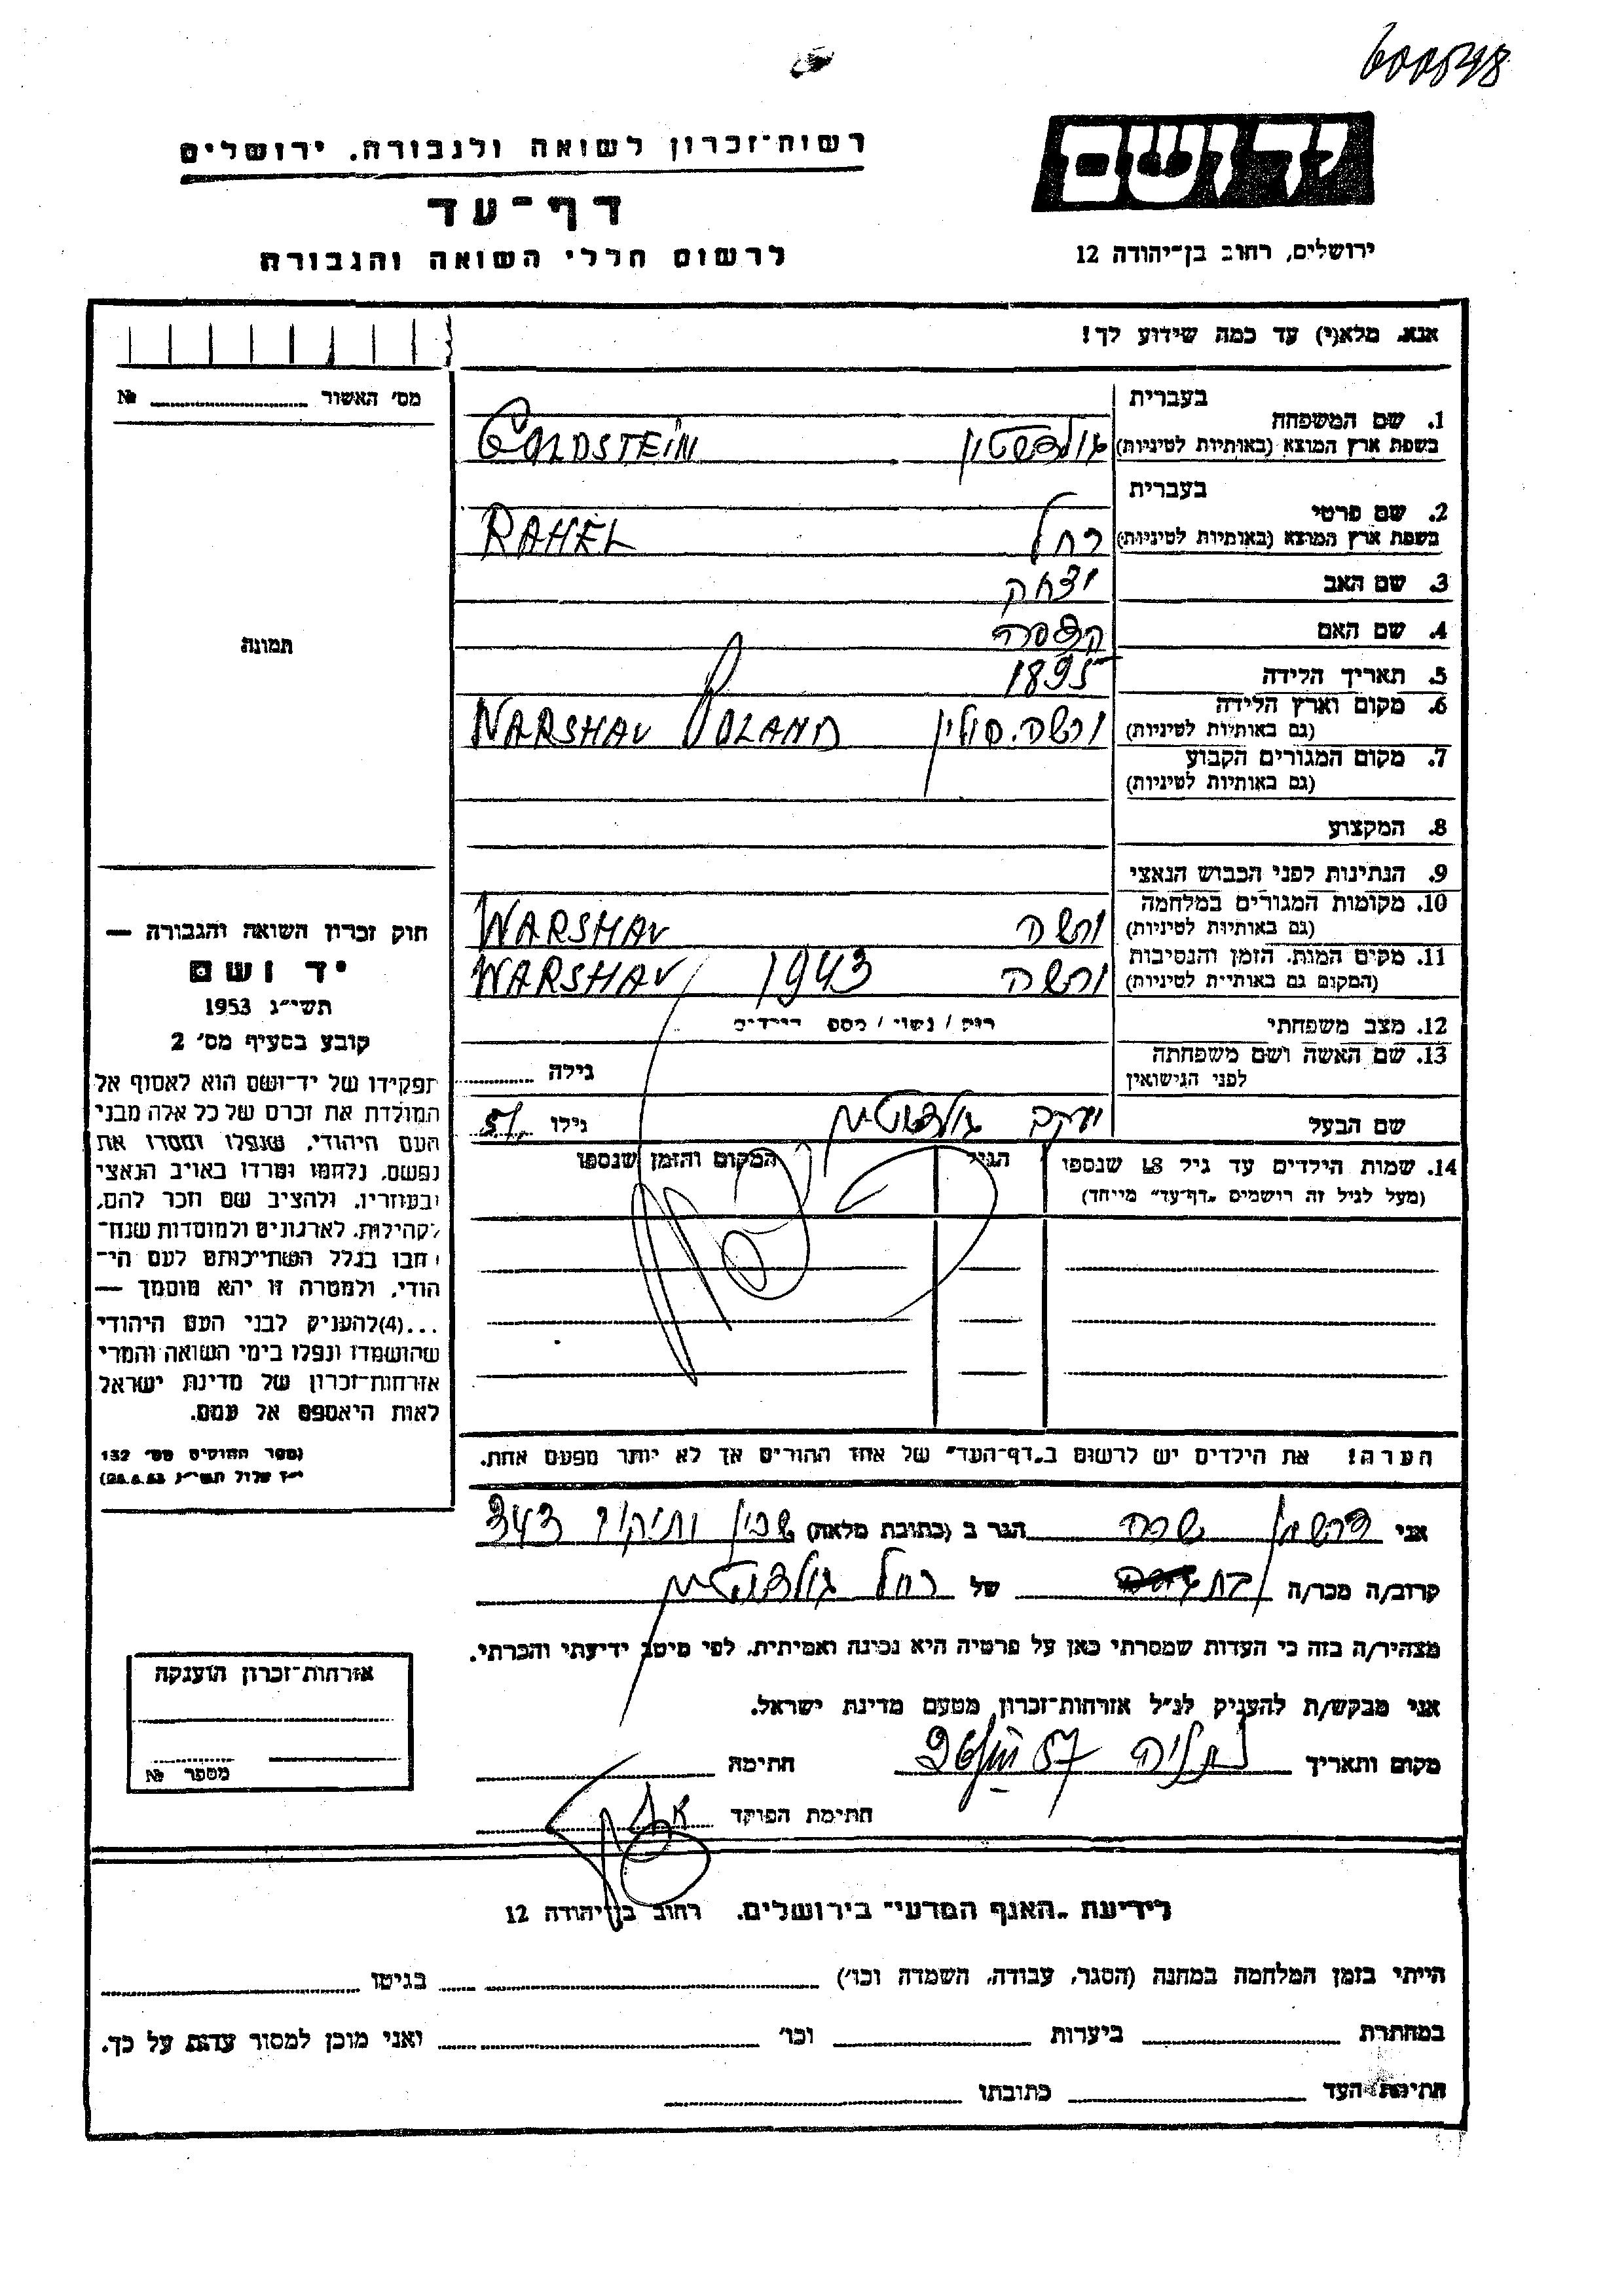 600548
רשות־זכרון לשואה ולגבורה. ירושלים
יד ושם
דף־עד
ירושלים, רחוב בן־יהודה 12
לרשום חללי השואה והגבורה
אנא, מלא(י) עד כמה שידוע לך!
מס' האשור №
בעברית
1. שם המשפחה
בשפת ארץ המוצא (באותיות לטיניות) גולדשטיין GOLDSTEIN
בעברית
2. שם פרטי
בשפת ארץ המוצא (באותיות לטיניות) רחל RAHEL
3. שם האב יצחק
4. שם האם
תמונה
5. תאריך הלידה 1895
6. מקום וארץ הלידה
(גם באותיות לטיניות) ורשה. פולין WARSHAV POLAND
7. מקום המגורים הקבוע
(גם באותיות לטיניות)
8. המקצוע
9. הנתינות לפני הכבוש הנאצי
10. מקומות המגורים במלחמה
(גם באותיות לטיניות) ורשה WARSHAV
11. מקום המות. הזמן והנסיבות
(המקום גם באותיות לטיניות) ורשה 1943 WARSHAV
12. מצב משפחתי רוק / נשוי / מספ הילדים
13. שם האשה ושם משפחתה
לפני הנישואין גילה
שם הבעל יעקב גולדשטיין גילו 51
14. שמות הילדים עד גיל 18 שנספו הגיל המקום והזמן שנספו
(מעל לגיל זה רושמים "דף־עד" מייחד)
חוק זכרון השואה והגבורה —
יד ושם
תשי"ג 1953
קובע בסעיף מס' 2
תפקידו של יד־ושם הוא לאסוף אל
המולדת את זכרם של כל אלה מבני
העם היהודי, שנפלו ומסרו את
נפשם, נלחמו ומרדו באויב הנאצי
ובעוזריו, ולהציב שם וזכר להם,
לקהילות, לארגונים ולמוסדות שנח־
רבו בגלל השתייכותם לעם הי־
הודי, ולמטרה זו יהא מוסמך —
...(4) להעניק לבני העם היהודי
שהושמדו ונפלו בימי השואה והמרי
אזרחות־זכרון של מדינת ישראל
לאות היאספם אל עמם.
(ספר החוקים מס' 132
י"ז אלול תשי"ג 28.8.53)
הערה! את הילדים יש לרשום ב"דף־העד" של אחד ההורים אך לא יותר מפעם אחת.
אני שרה הגר ב (כתובת מלאה) שכון ותיקים 343
קרוב/ה מכר/ה בת של רחל גולדשטיין
מצהיר/ה בזה כי העדות שמסרתי כאן על פרטיה היא נכונה ואמיתית, לפי מיטב ידיעתי והכרתי.
אני מבקש/ת להעניק לנ"ל אזרחות־זכרון מטעם מדינת ישראל.
מקום ותאריך נתניה חתימה
חתימת הפוקד
אזרחות־זכרון הוענקה
מספר №
לידיעת "האגף המדעי" בירושלים. רחוב בן־יהודה 12
הייתי בזמן המלחמה במחנה (הסגר, עבודה, השמדה וכו') בגיטו
במחתרת ביערות וכו' ואני מוכן למסור עדות על כך.
חתימת העד כתובתו